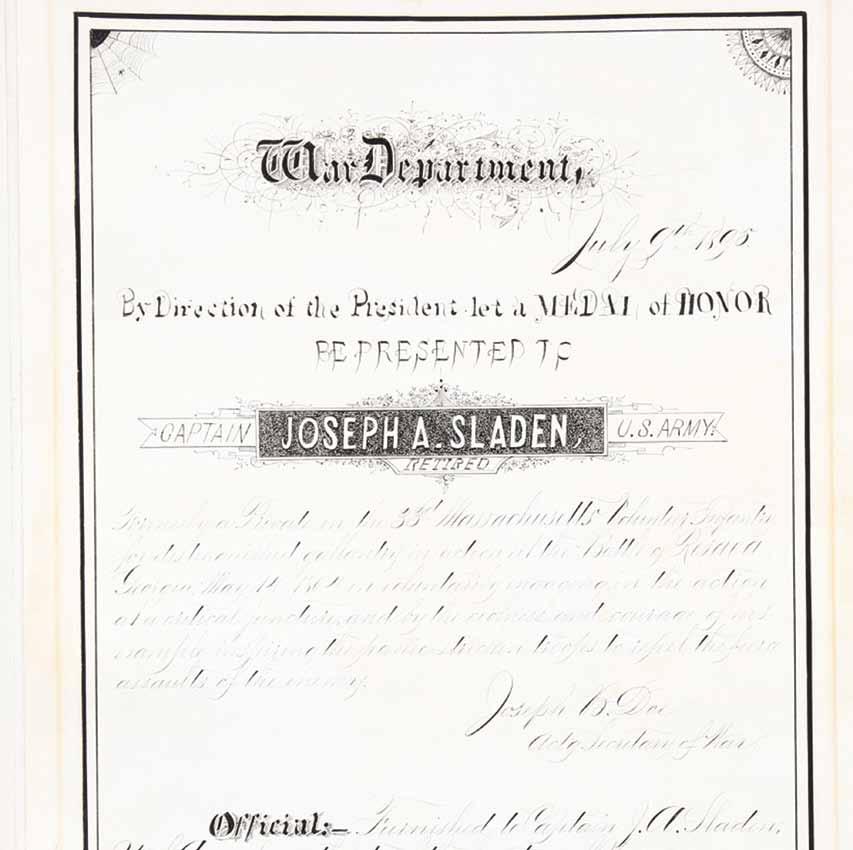 War Department,
July 9th 1895.
By Direction of the President let a MEDAL of HONOR
BE PRESENTED TO
CAPTAIN JOSEPH A. SLADEN, U.S. ARMY.
RETIRED
Formerly a Private in the 33rd Massachusetts Volunteer Infantry
for distinguished gallantry in action at the Battle of Resaca,
Georgia, May 14, 1864 in voluntarily engaging in the action
at a critical juncture, and by the coolness and courage of his
example inspiring the panic-stricken troops to repel the fierce
assaults of the enemy.
Joseph B. Doe
Actg Secretary of War.
Official:- Furnished to Captain J. A. Sladen,